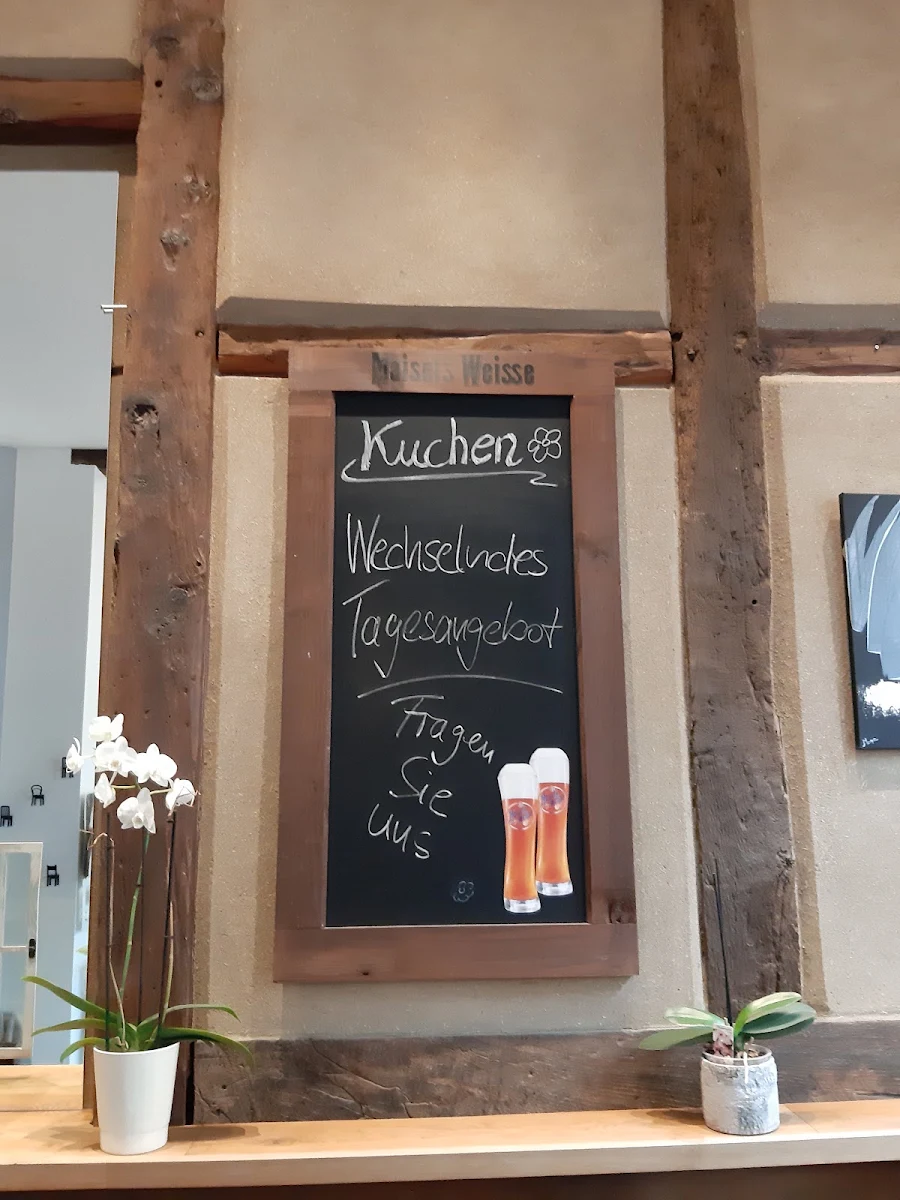 Maisel's Weisse
Kuchen
Wechselndes
Tagesangebot
Fragen
Sie
uns